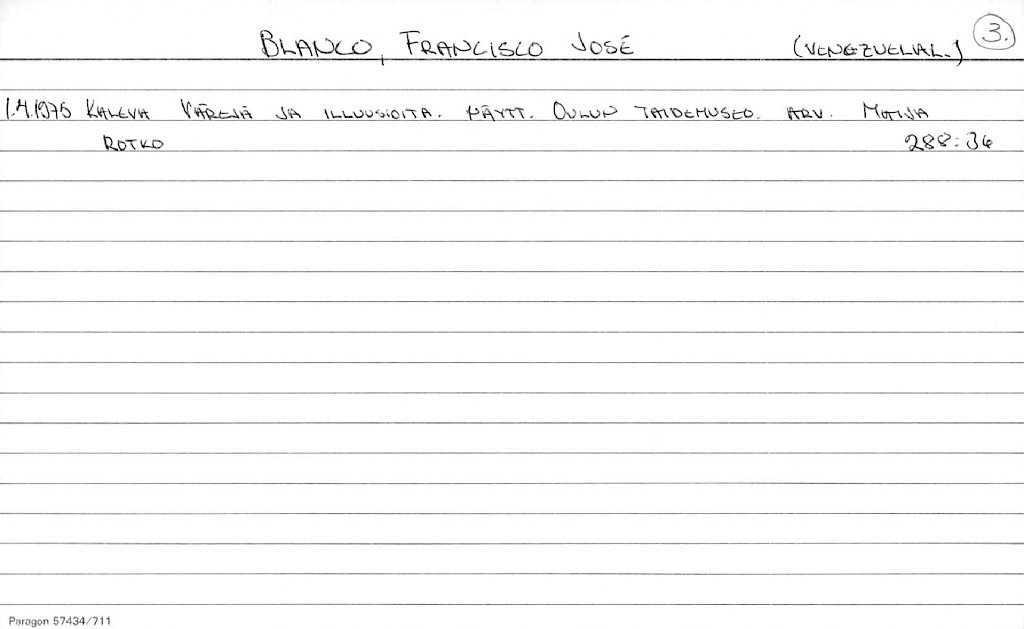 BLANCO, FRANCISCO JOSÉ (VENEZUELAL.) 3.
1.4.1975 KALEVA VÄREJÄ JA ILLUUSIOITA. NÄYTT. OULUN TAIDEMUSEO. ARV. MATIJA
ROTKO 288:36
Paragon 57434/711